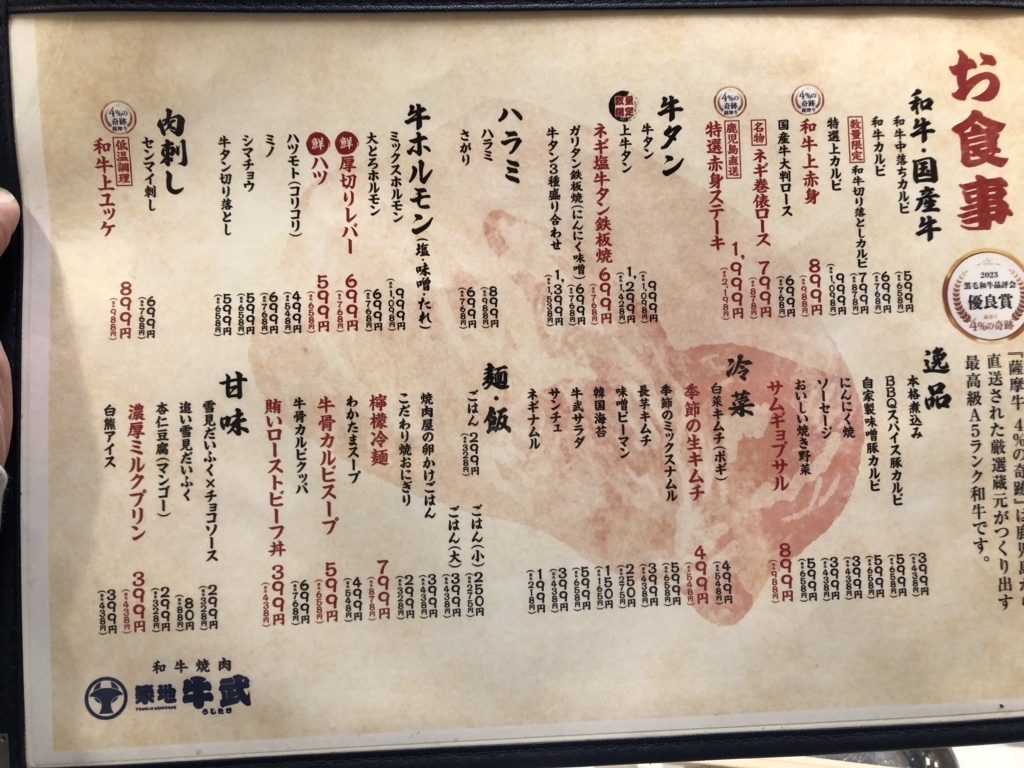 お食事
2023
黒毛和牛品評会
優良賞
4%の奇跡
直送された厳選蔵元がつくり出す
最高級A5ランク和牛です。
和牛・国産牛
和牛中落ちカルビ 599円
和牛カルビ 699円
(税込768円)
数量限定 和牛切り落としカルビ 799円
特選上カルビ 999円
4%の奇跡
和牛上赤身 899円
(税込988円)
国産牛大判ロース 699円
名物 ネギ巻俵ロース 799円
(税込878円)
4%の奇跡
鹿児島直送
特選赤身ステーキ 1,999円
(税込2,198円)
牛タン
牛タン 999円
数量限定
上牛タン 1,299円
(税込1,428円)
ネギ塩牛タン鉄板焼 699円
(税込768円)
ガリタン鉄板焼(にんにく味噌) 699円
(税込768円)
牛タン3種盛り合わせ 1,399円
(税込1,538円)
ハラミ
ハラミ 899円
さがり 699円
(税込768円)
牛ホルモン(塩・味噌・たれ)
ミックスホルモン 999円
大とろホルモン 699円
鮮 厚切りレバー 699円
(税込768円)
鮮 ハツ 599円
(税込658円)
ハツモト(コリコリ) 499円
ミノ 699円
シマチョウ 599円
牛タン切り落とし 599円
肉刺し
センマイ刺し 699円
(税込768円)
4%の奇跡
低温調理
和牛上ユッケ 899円
(税込988円)
逸品
本格煮込み 399円
(税込438円)
BBQスパイス豚カルビ 599円
(税込658円)
自家製味噌豚カルビ 599円
(税込658円)
にんにく焼 399円
(税込438円)
ソーセージ 399円
(税込438円)
おいしい焼き野菜 599円
(税込658円)
サムギョプサル 899円
(税込988円)
冷菜
白菜キムチ(ポギ) 499円
(税込548円)
季節の生キムチ 499円
(税込548円)
季節のミックスナムル 599円
(税込658円)
長芋キムチ 399円
(税込438円)
味噌ピーマン 250円
(税込275円)
韓国海苔 150円
牛武サラダ 599円
(税込658円)
サンチュ 399円
(税込438円)
ネギナムル 199円
(税込218円)
麺・飯
ごはん 299円
(税込328円)
ごはん(小) 250円
(税込275円)
ごはん(大) 399円
(税込438円)
焼肉屋の卵かけごはん 399円
(税込438円)
こだわり焼おにぎり 299円
(税込328円)
檸檬冷麺 799円
(税込878円)
わかたまスープ 499円
(税込548円)
牛骨カルビスープ 599円
(税込658円)
牛骨カルビクッパ 699円
(税込768円)
賄いローストビーフ丼 399円
(税込438円)
甘味
雪見だいふく×チョコソース 299円
(税込328円)
追い雪見だいふく 80円
杏仁豆腐(マンゴー) 299円
(税込328円)
濃厚ミルクプリン 399円
(税込438円)
白熊アイス 399円
(税込438円)
和牛焼肉
築地 牛武
うしたけ